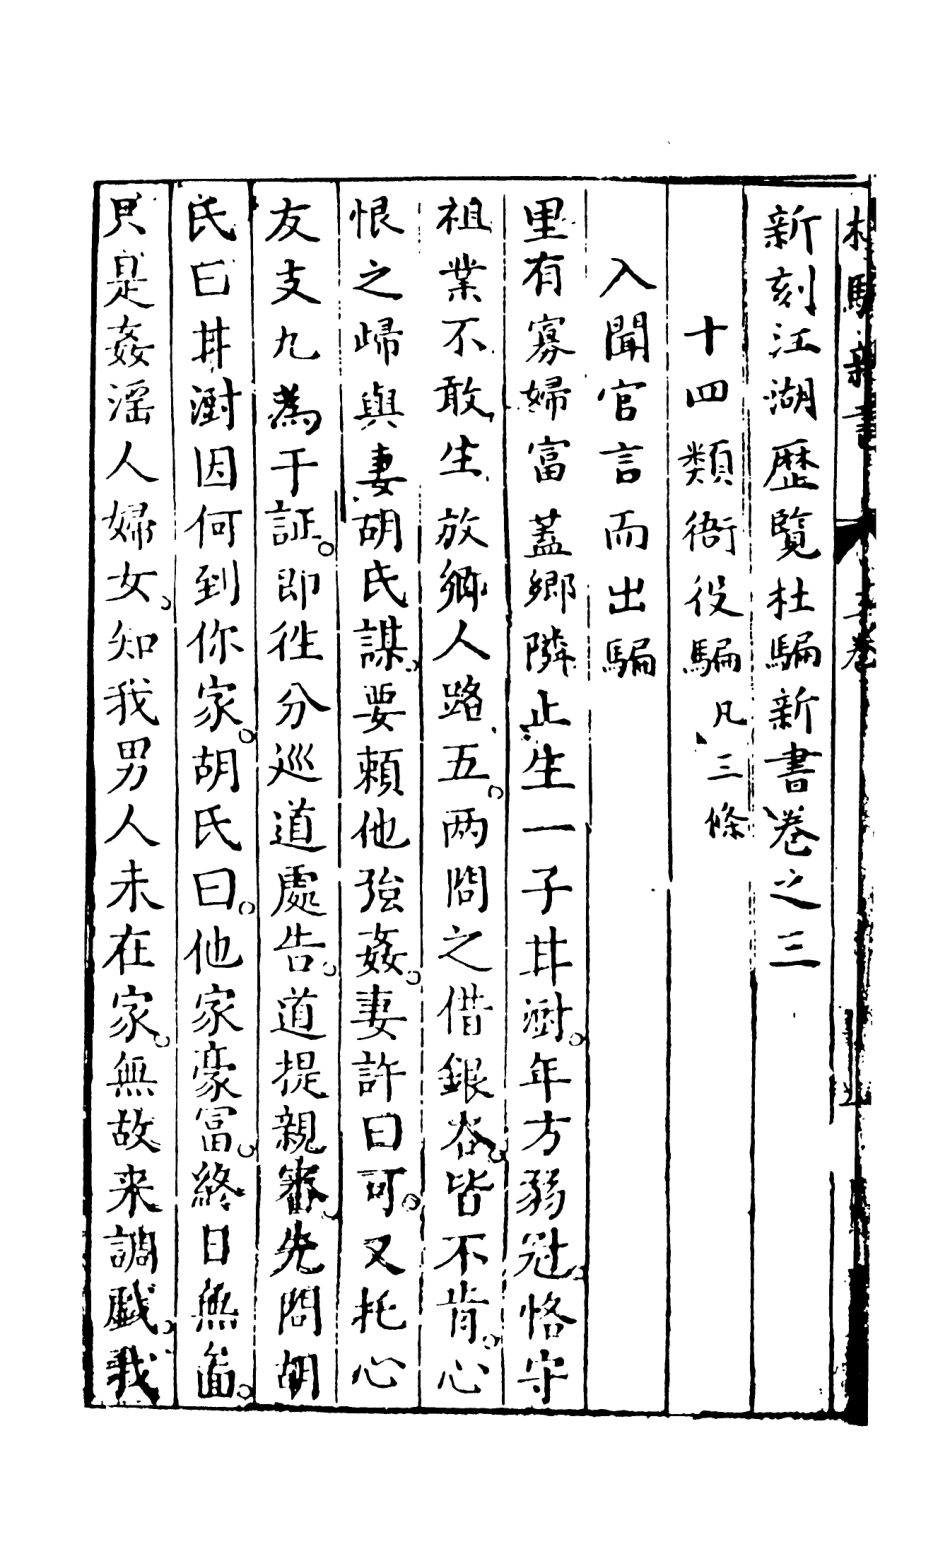 杜騙新書 三卷
新刻江湖歷覽杜騙新書卷之三
十四類衙役騙 凡三條
入聞官言而出騙
里有寡婦富蓋鄉隣止生一子井澍。年方弱冠。恪守
祖業不敢生放鄉人路五。两問之借銀谷。皆不肯。心
恨之歸與妻胡氏謀。要頼他強姦。妻許曰可。又托心
友支九為干証。即徃分巡道處告。道提親審。先問胡
氏曰井澍因何到你家。胡氏曰。他家豪富。終日無
只是姦滛人婦女。知我男人未在家。無故来調戯。我